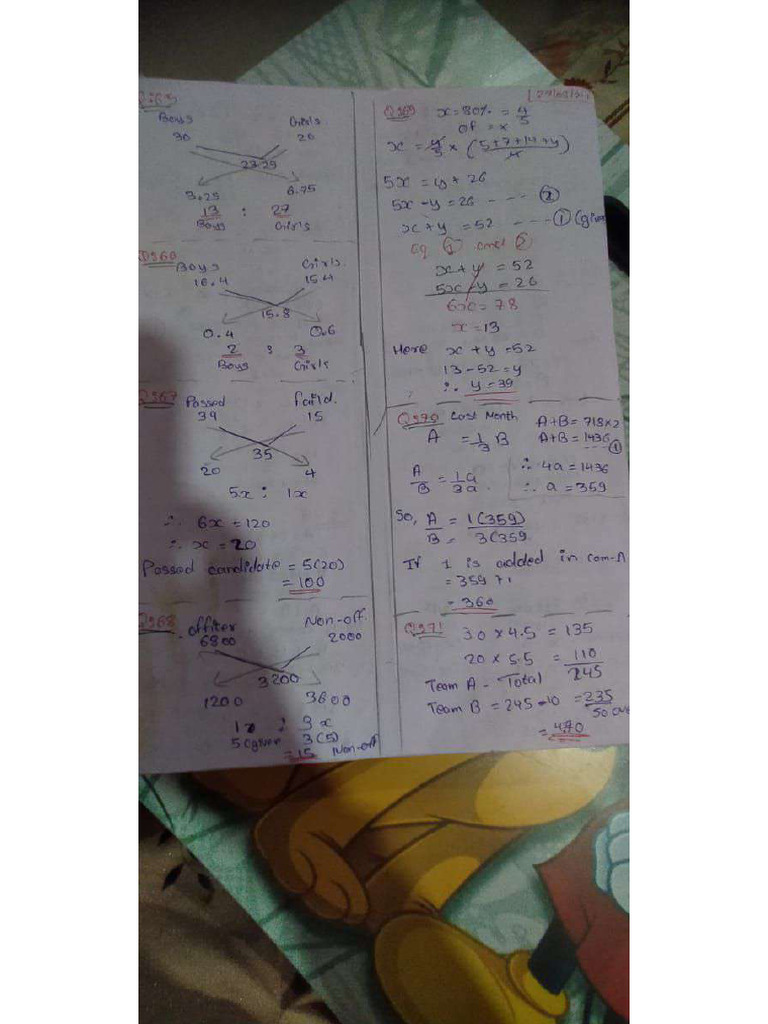 Boys Girls
30 20
23.25
3.25 6.75
13 : 27
Boys Girls
Boys Girls.
16.4 15.4
15.8
0.4 0.6
2 : 3
Boys Girls
Q567 Passed Faild.
39 15
35
20 4
5x : 1x
∴ 6x = 120
∴ x = 20
Passed candidate = 5(20)
= 100
Q568 officer Non-off.
6800 2000
3200
1200 3600
1x : 3x
5 given 3(5)
= 15 Non-off
Q569 x = 80% = 4/5
of = x
x = 4/5 × (5+7+14+y)/4
5x = y + 26
5x - y = 26 ---- ②
x + y = 52 ---- ① (given
eq ① and ②
x + y = 52
5x - y = 26
6x = 78
x = 13
Here x + y = 52
13 - 52 = y
∴ y = 39
Q570 Last Month A+B = 718×2
A = 1/3 B A+B = 1436 ①
A/B = 1a/3a. ∴ 4a = 1436
∴ a = 359
So, A/B = 1(359)/3(359
If 1 is added in com-A
= 359+1
= 360
Q571 30 × 4.5 = 135
20 × 5.5 = 110
245
Team A - Total
Team B = 245 - 10 = 235
50 ove
= 4.70